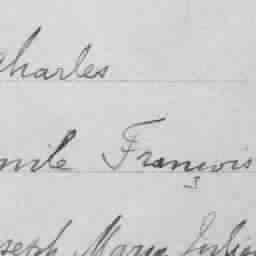 Charles
mile François
seph Marie Julien